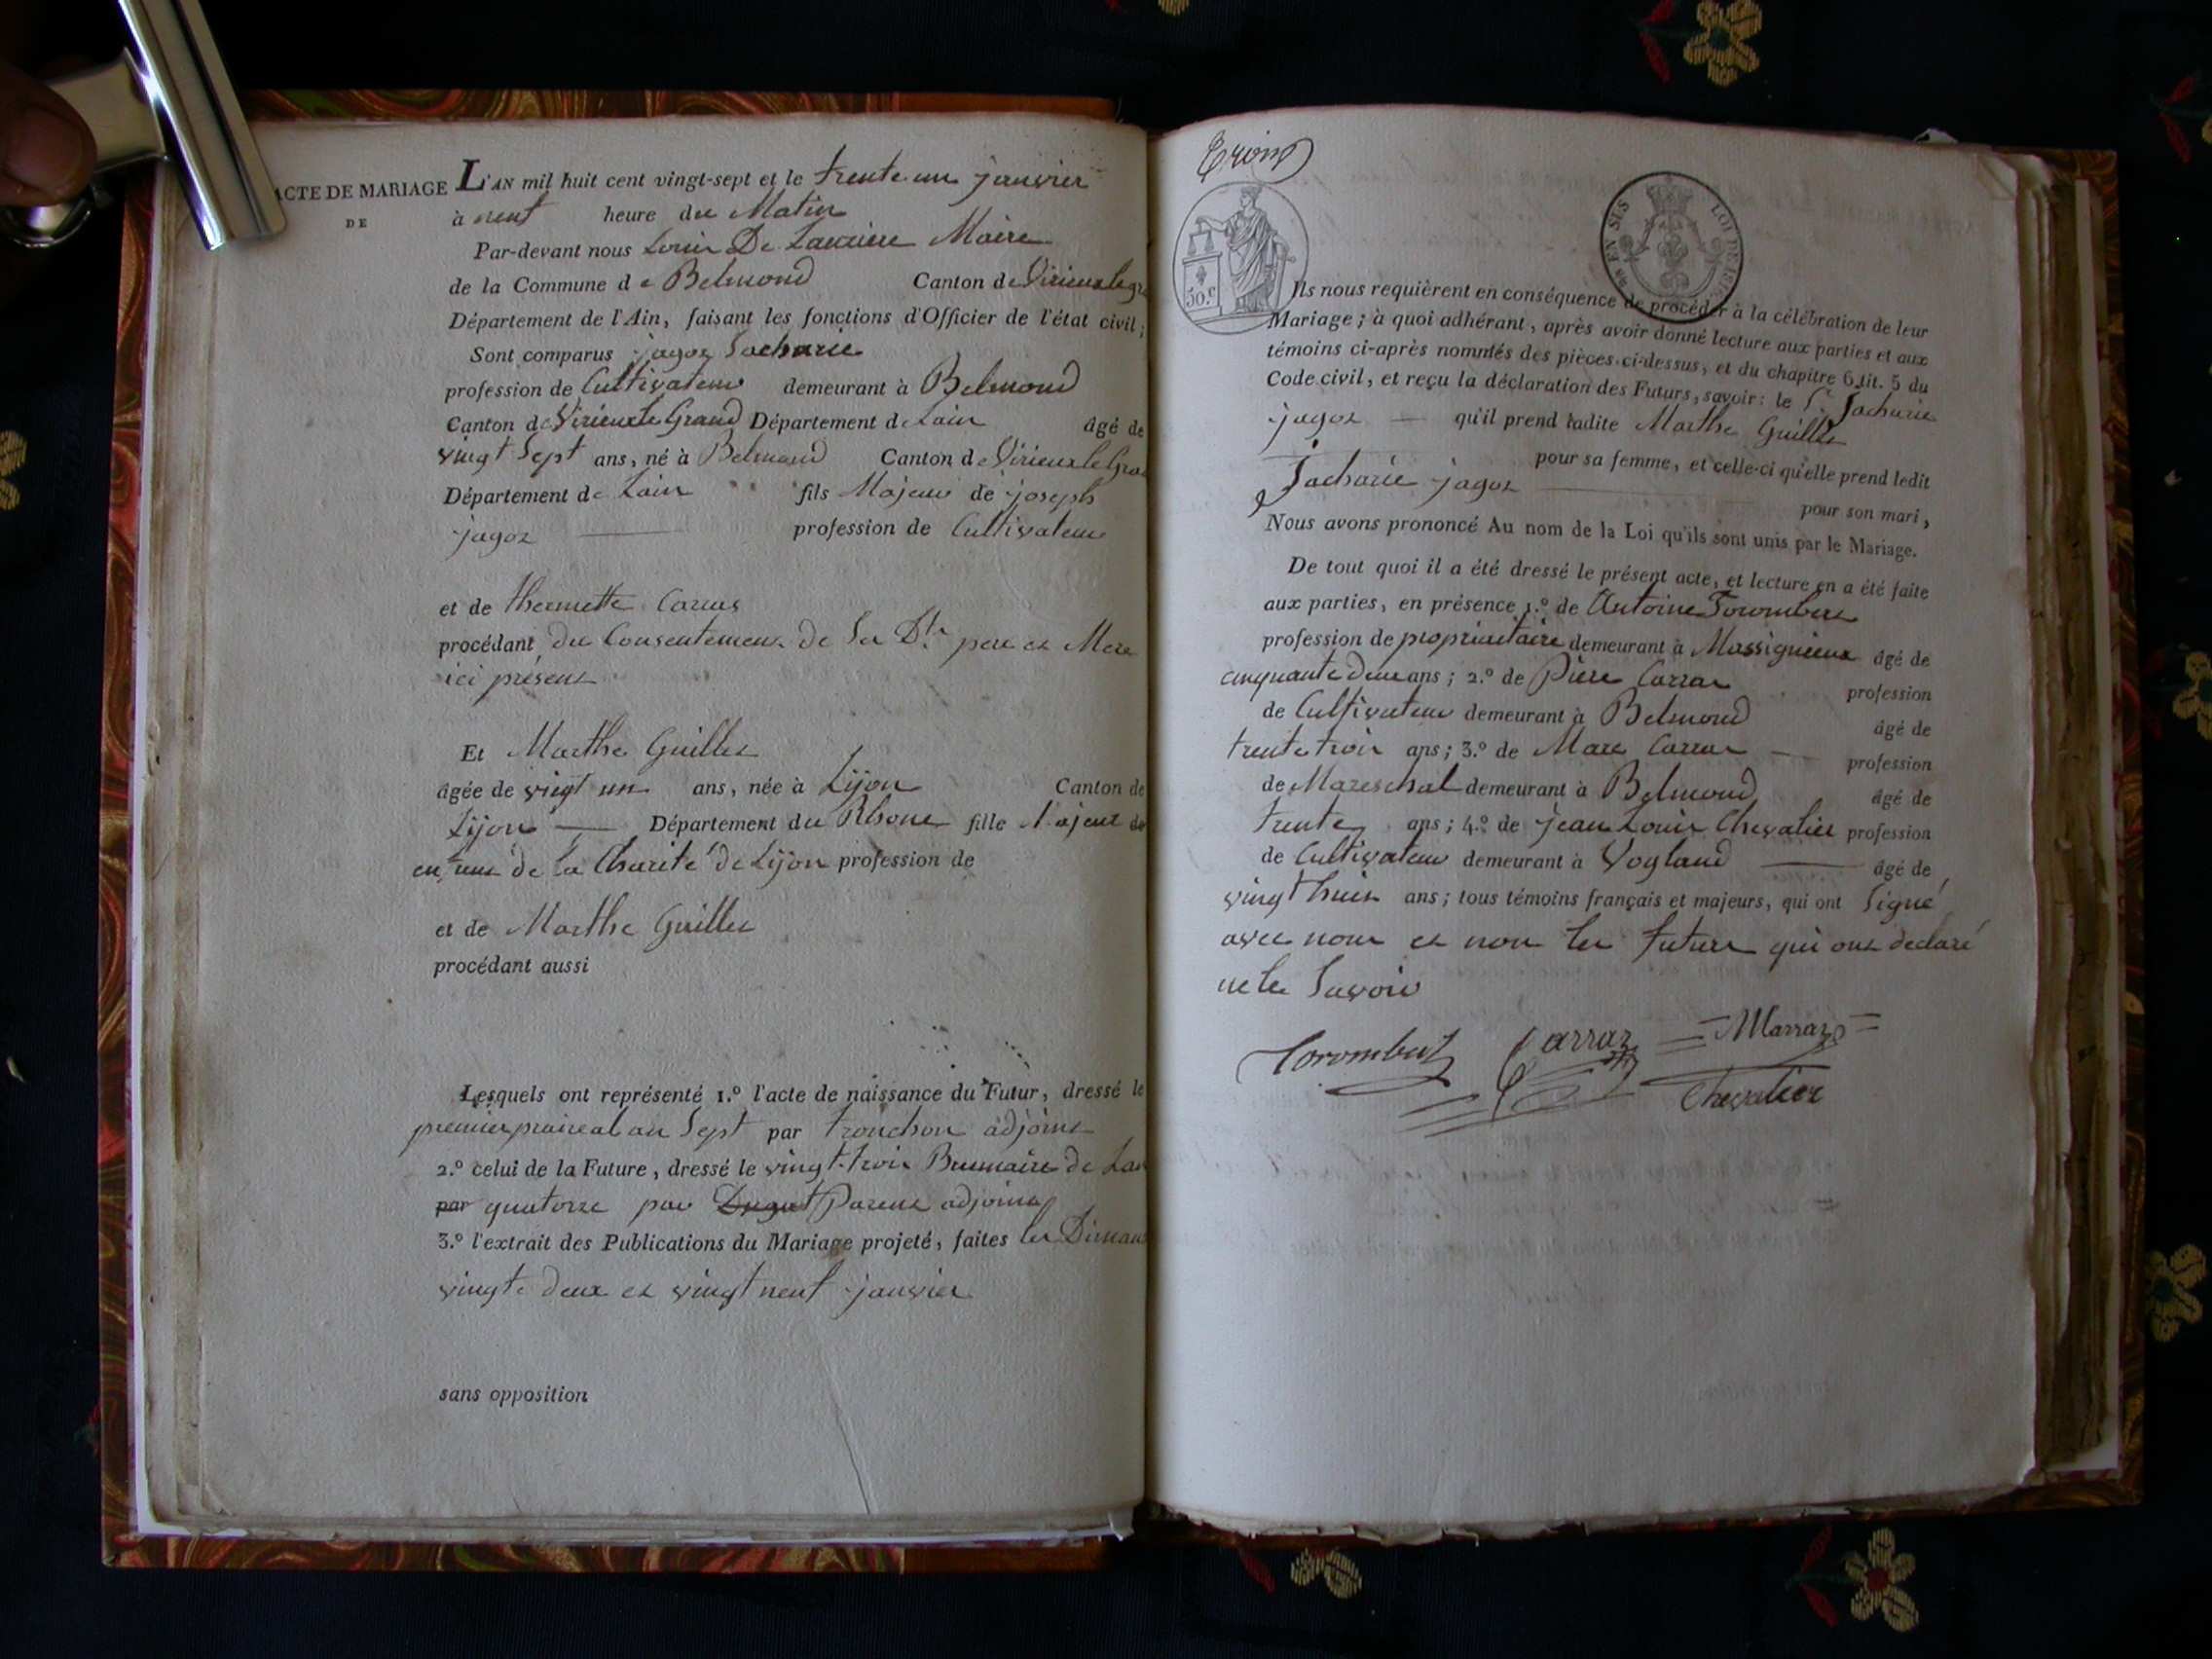 ACTE DE MARIAGE
DE
L'AN mil huit cent vingt-sept et le trente un janvier
à neuf heure du Matin
Par-devant nous Louis De Lauziere Maire
de la Commune de Belmond Canton de Virieux le gr
Département de l'Ain, faisant les fonctions d'Officier de l'état civil;
Sont comparus jagoz Sacharie
profession de Cultivateur demeurant à Belmond
Canton de Virieux le Grand Département de Lain âgé de
vingt Sept ans, né à Belmond Canton de Virieux le Gra
Département de Lain fils Majeur de joseph
jagoz profession de Cultivateur
et de thermette Carraz
procédant du Consentement de Ses Dts pere et Mere
ici présent
Et Marthe Guillez
âgée de vingt un ans, née à Lijon Canton de
Lijon Département du Rhone fille Majeur de
de la Charité de Lijon profession de
et de Marthe Guillez
procédant aussi
Lesquels ont représenté 1.º l'acte de naissance du Futur, dressé le
premier praireal an Sept par tronchon adjoint
2.º celui de la Future, dressé le vingt-trois Brumaire de Lan
par quatorze par Parent adjoint
3.º l'extrait des Publications du Mariage projeté, faites les Diman
vingt deux et vingt neuf janvier
sans opposition
trois
50.c
EN SUS
LOI DE 1816
Ils nous requièrent en conséquence de procéder à la célébration de leur
Mariage; à quoi adhérant, après avoir donné lecture aux parties et aux
témoins ci-après nommés des pièces ci-dessus, et du chapitre 6 tit. 5 du
Code civil, et reçu la déclaration des Futurs, savoir: le Sr Sacharie
jagoz qu'il prend ladite Marthe Guillez
pour sa femme, et celle-ci qu'elle prend ledit
Sacharie jagoz pour son mari,
Nous avons prononcé Au nom de la Loi qu'ils sont unis par le Mariage.
De tout quoi il a été dressé le présent acte, et lecture en a été faite
aux parties, en présence 1.º de Antoine Torombert
profession de propriaitaire demeurant à Massignieux âgé de
cinquante deux ans; 2.º de Piere Carraz profession
de Cultivateur demeurant à Belmond âgé de
trente trois ans; 3.º de Marc Carraz profession
de Mareschal demeurant à Belmond âgé de
trente ans; 4.º de jean Louis Chevalier profession
de Cultivateur demeurant à Vogland âgé de
vingt huit ans; tous témoins français et majeurs, qui ont Signé
avec nous et non les futurs qui ont declaré
ne le Savoir
Torombert Carraz MCarraz
Chevalier